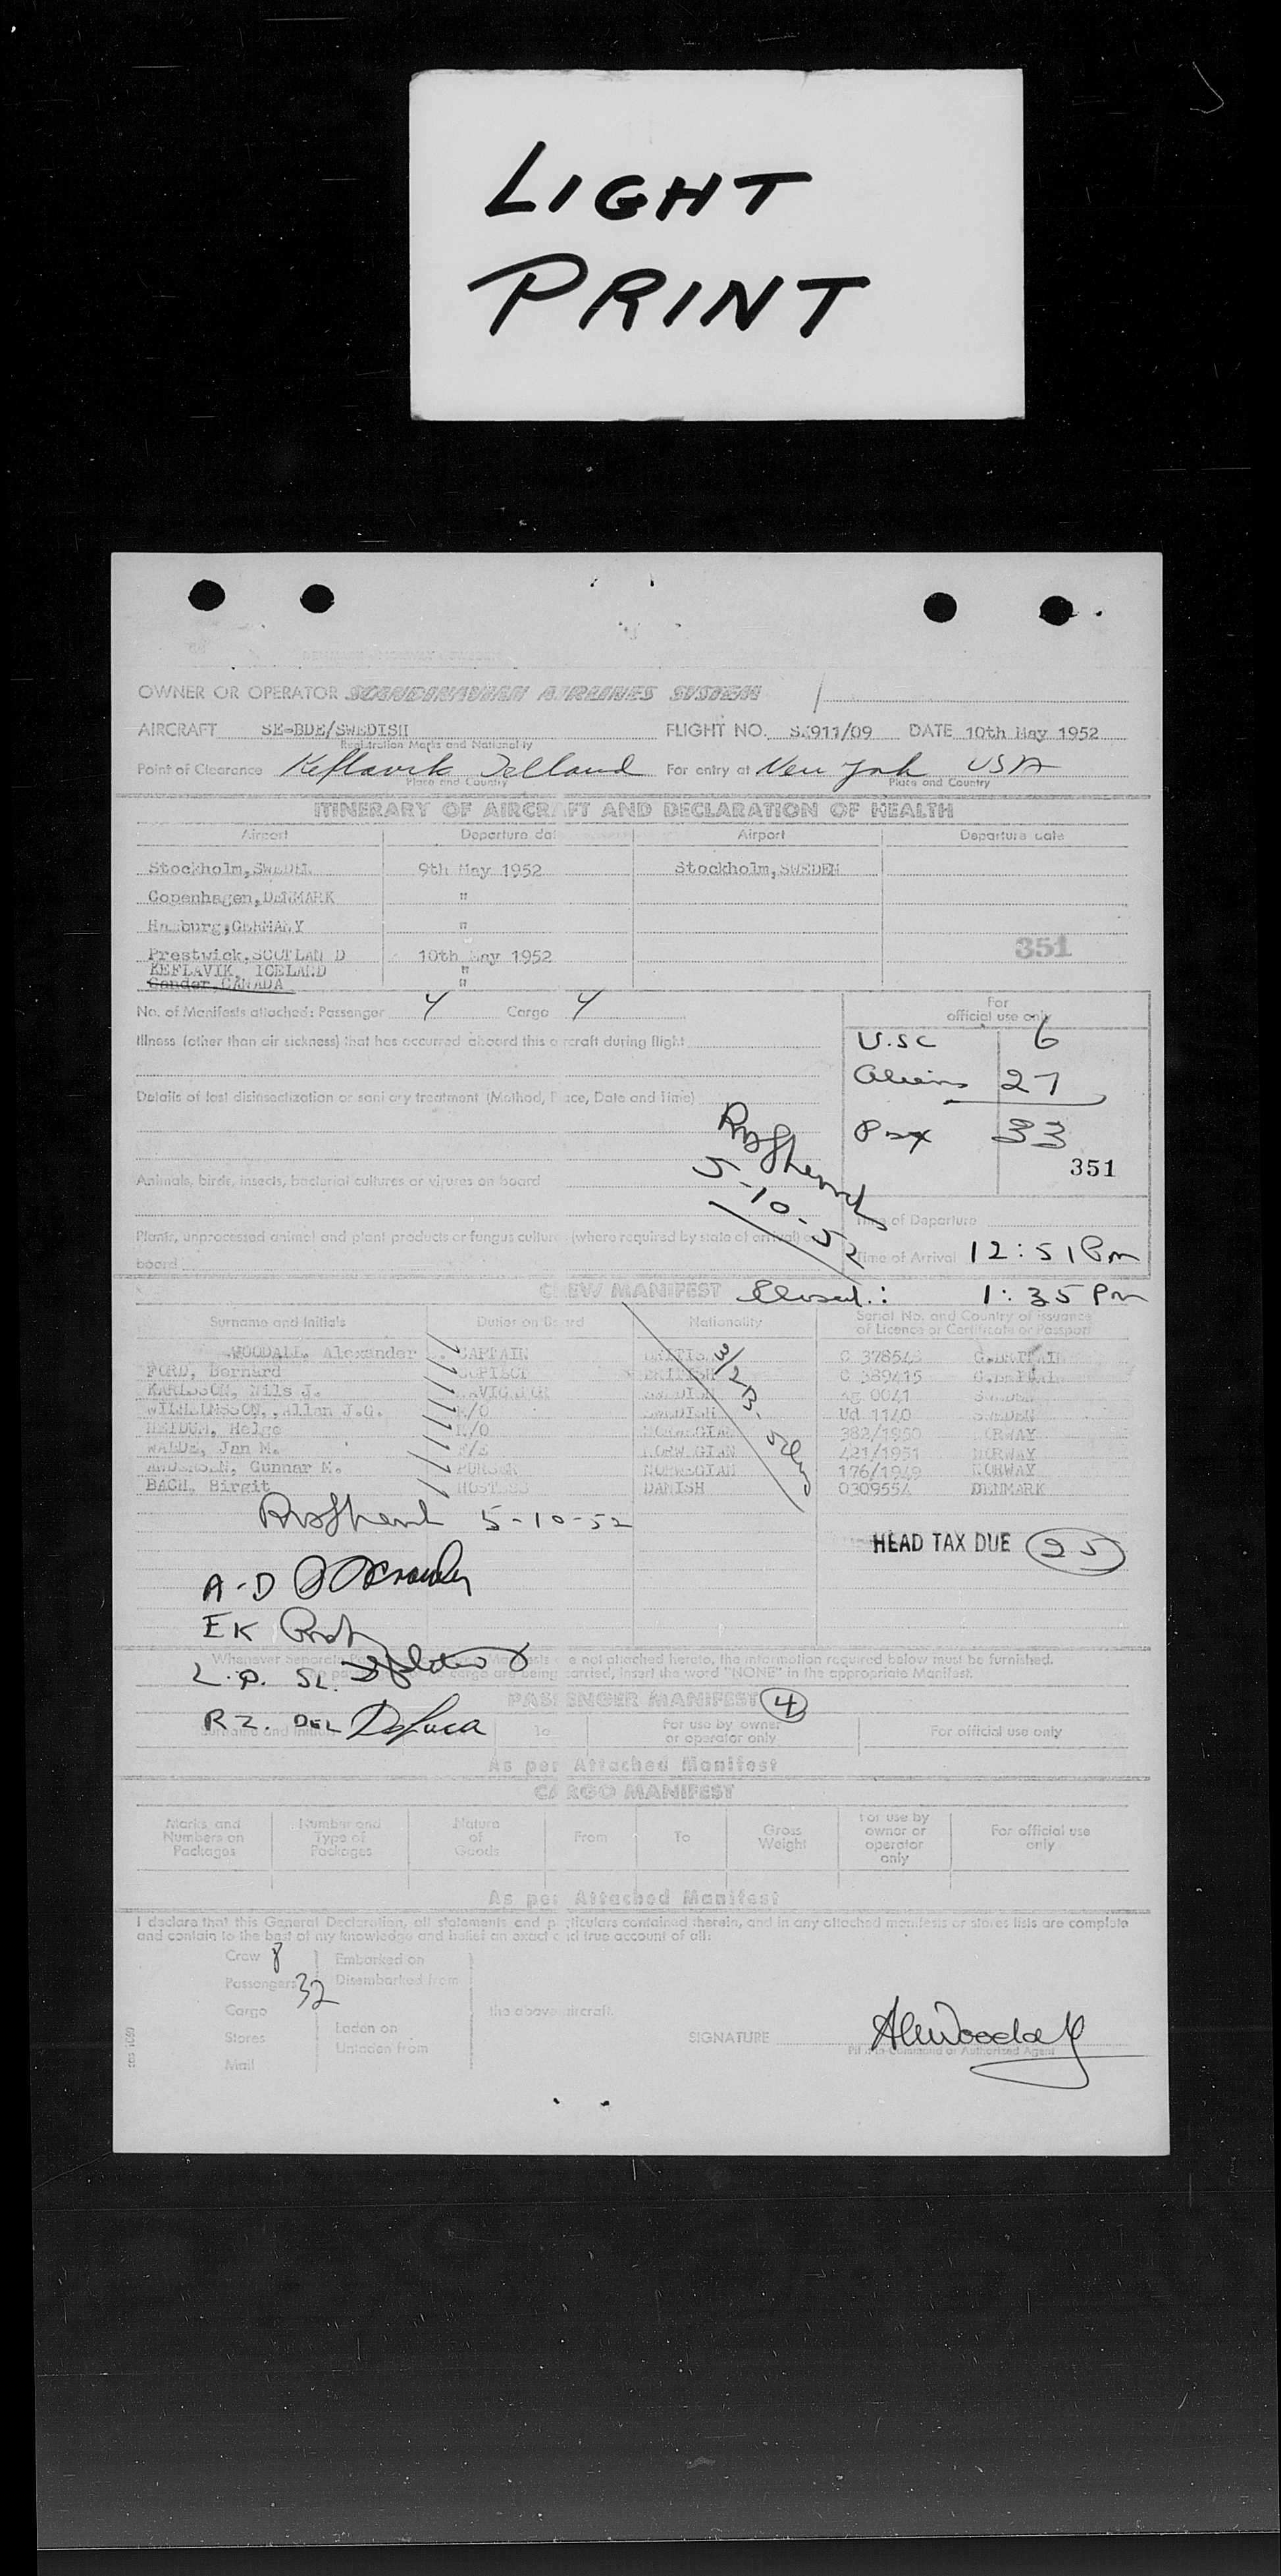 LIGHT
PRINT
OWNER OR OPERATOR SCANDINAVIAN AIRLINES SYSTEM
AIRCRAFT SE-BDE/SWEDISH FLIGHT NO. SK911/09 DATE 10th May 1952
Registration Marks and Nationality
Point of Clearance Keflavik For entry at New York USA
Place and Country Place and Country
ITINERARY OF AIRCRAFT AND DECLARATION OF HEALTH
Airport Departure date Airport Departure date
Stockholm, SWEDEN 9th May 1952 Stockholm, SWEDEN
Copenhagen, DENMARK "
Hamburg, GERMANY "
351
Prestwick, SCOTLAN D 10th May 1952
KEFLAVIK, ICELAND "
Gander, CANADA "
No. of Manifests attached: Passenger 4 Cargo 4
For
official use only
Illness (other than air sickness) that has occurred aboard this aircraft during flight
U.SC 6
Aliens 27
Details of last disinsectization or sanitary treatment (Method, Place, Date and Time)
Pax 33
351
5-10-52
Animals, birds, insects, bacterial cultures or viruses on board
Time of Departure
Plants, unprocessed animal and plant products or fungus cultures (where required by state of arrival) on
board
Time of Arrival 12:51 Pm
Closed: 1:35 Pm
CREW MANIFEST
Surname and Initials Duties on Board Nationality Serial No. and Country of issuance
of Licence or Certificate or Passport
WOODALL, Alexander CAPTAIN BRITISH C 378548 G.BRITAIN
FORD, Bernard COPILOT BRITISH C 389415 G.BRITAIN
KARLSSON, Nils J. NAVIGATOR SWEDISH 0041 SWEDEN
WILHELMSSON, Allan J.G. R/O SWEDISH Ud 1140 SWEDEN
HEIDUM, Helge R/O NORWEGIAN 382/1950 NORWAY
WALDE, Jan M. F/E NORWEGIAN 421/1951 NORWAY
ANDERSEN, Gunnar M. PURSER NORWEGIAN 176/1949 NORWAY
BACH, Birgit HOSTESS DANISH 0309554 DENMARK
5-10-52
HEAD TAX DUE 25
A-D
EK
Whenever Separate Manifests are not attached hereto, the information required below must be furnished.
cargo are being carried, insert the word "NONE" in the appropriate Manifest.
L.P. SL.
PASSENGER MANIFEST 4
RZ. DEL DeLuca
To For use by owner
or operator only For official use only
As per Attached Manifest
CARGO MANIFEST
Marks and
Numbers on
Packages
Number and
Type of
Packages
Nature
of
Goods
From To
Gross
Weight
For use by
owner or
operator
only
For official use
only
As per Attached Manifest
I declare that this General Declaration, all statements and particulars contained therein, and in any attached manifests or stores lists are complete
and contain to the best of my knowledge and belief an exact and true account of all:
Crew 8 Embarked on
Passengers 32 Disembarked from
Cargo the above aircraft.
Stores Laden on
Unladen from
Mail
SIGNATURE AlWoodall
Pilot in Command or Authorized Agent